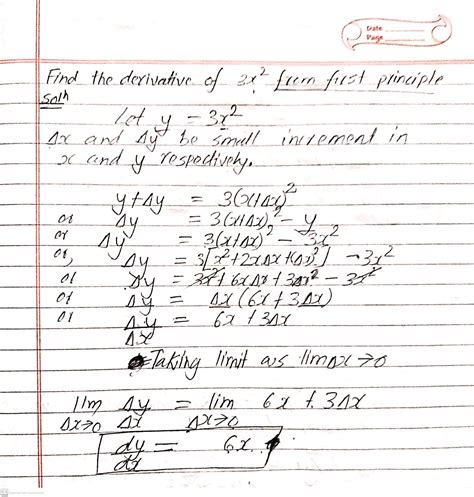 Date
Page
Find the derivative of 3x² from first principle
Solⁿ
Let y = 3x²
Δx and Δy be small increment in
x and y respectively.
y+Δy = 3(x+Δx)²
or Δy = 3(x+Δx)² - y
or Δy = 3(x+Δx)² - 3x²
or, Δy = 3[x²+2xΔx+(Δx)²] - 3x²
or Δy = 3x²+6xΔx+3Δx² - 3x²
or Δy = Δx(6x+3Δx)
or Δy/Δx = 6x+3Δx
Taking limit as limΔx→0
lim Δx→0 Δy/Δx = lim Δx→0 6x+3Δx
dy/dx = 6x.